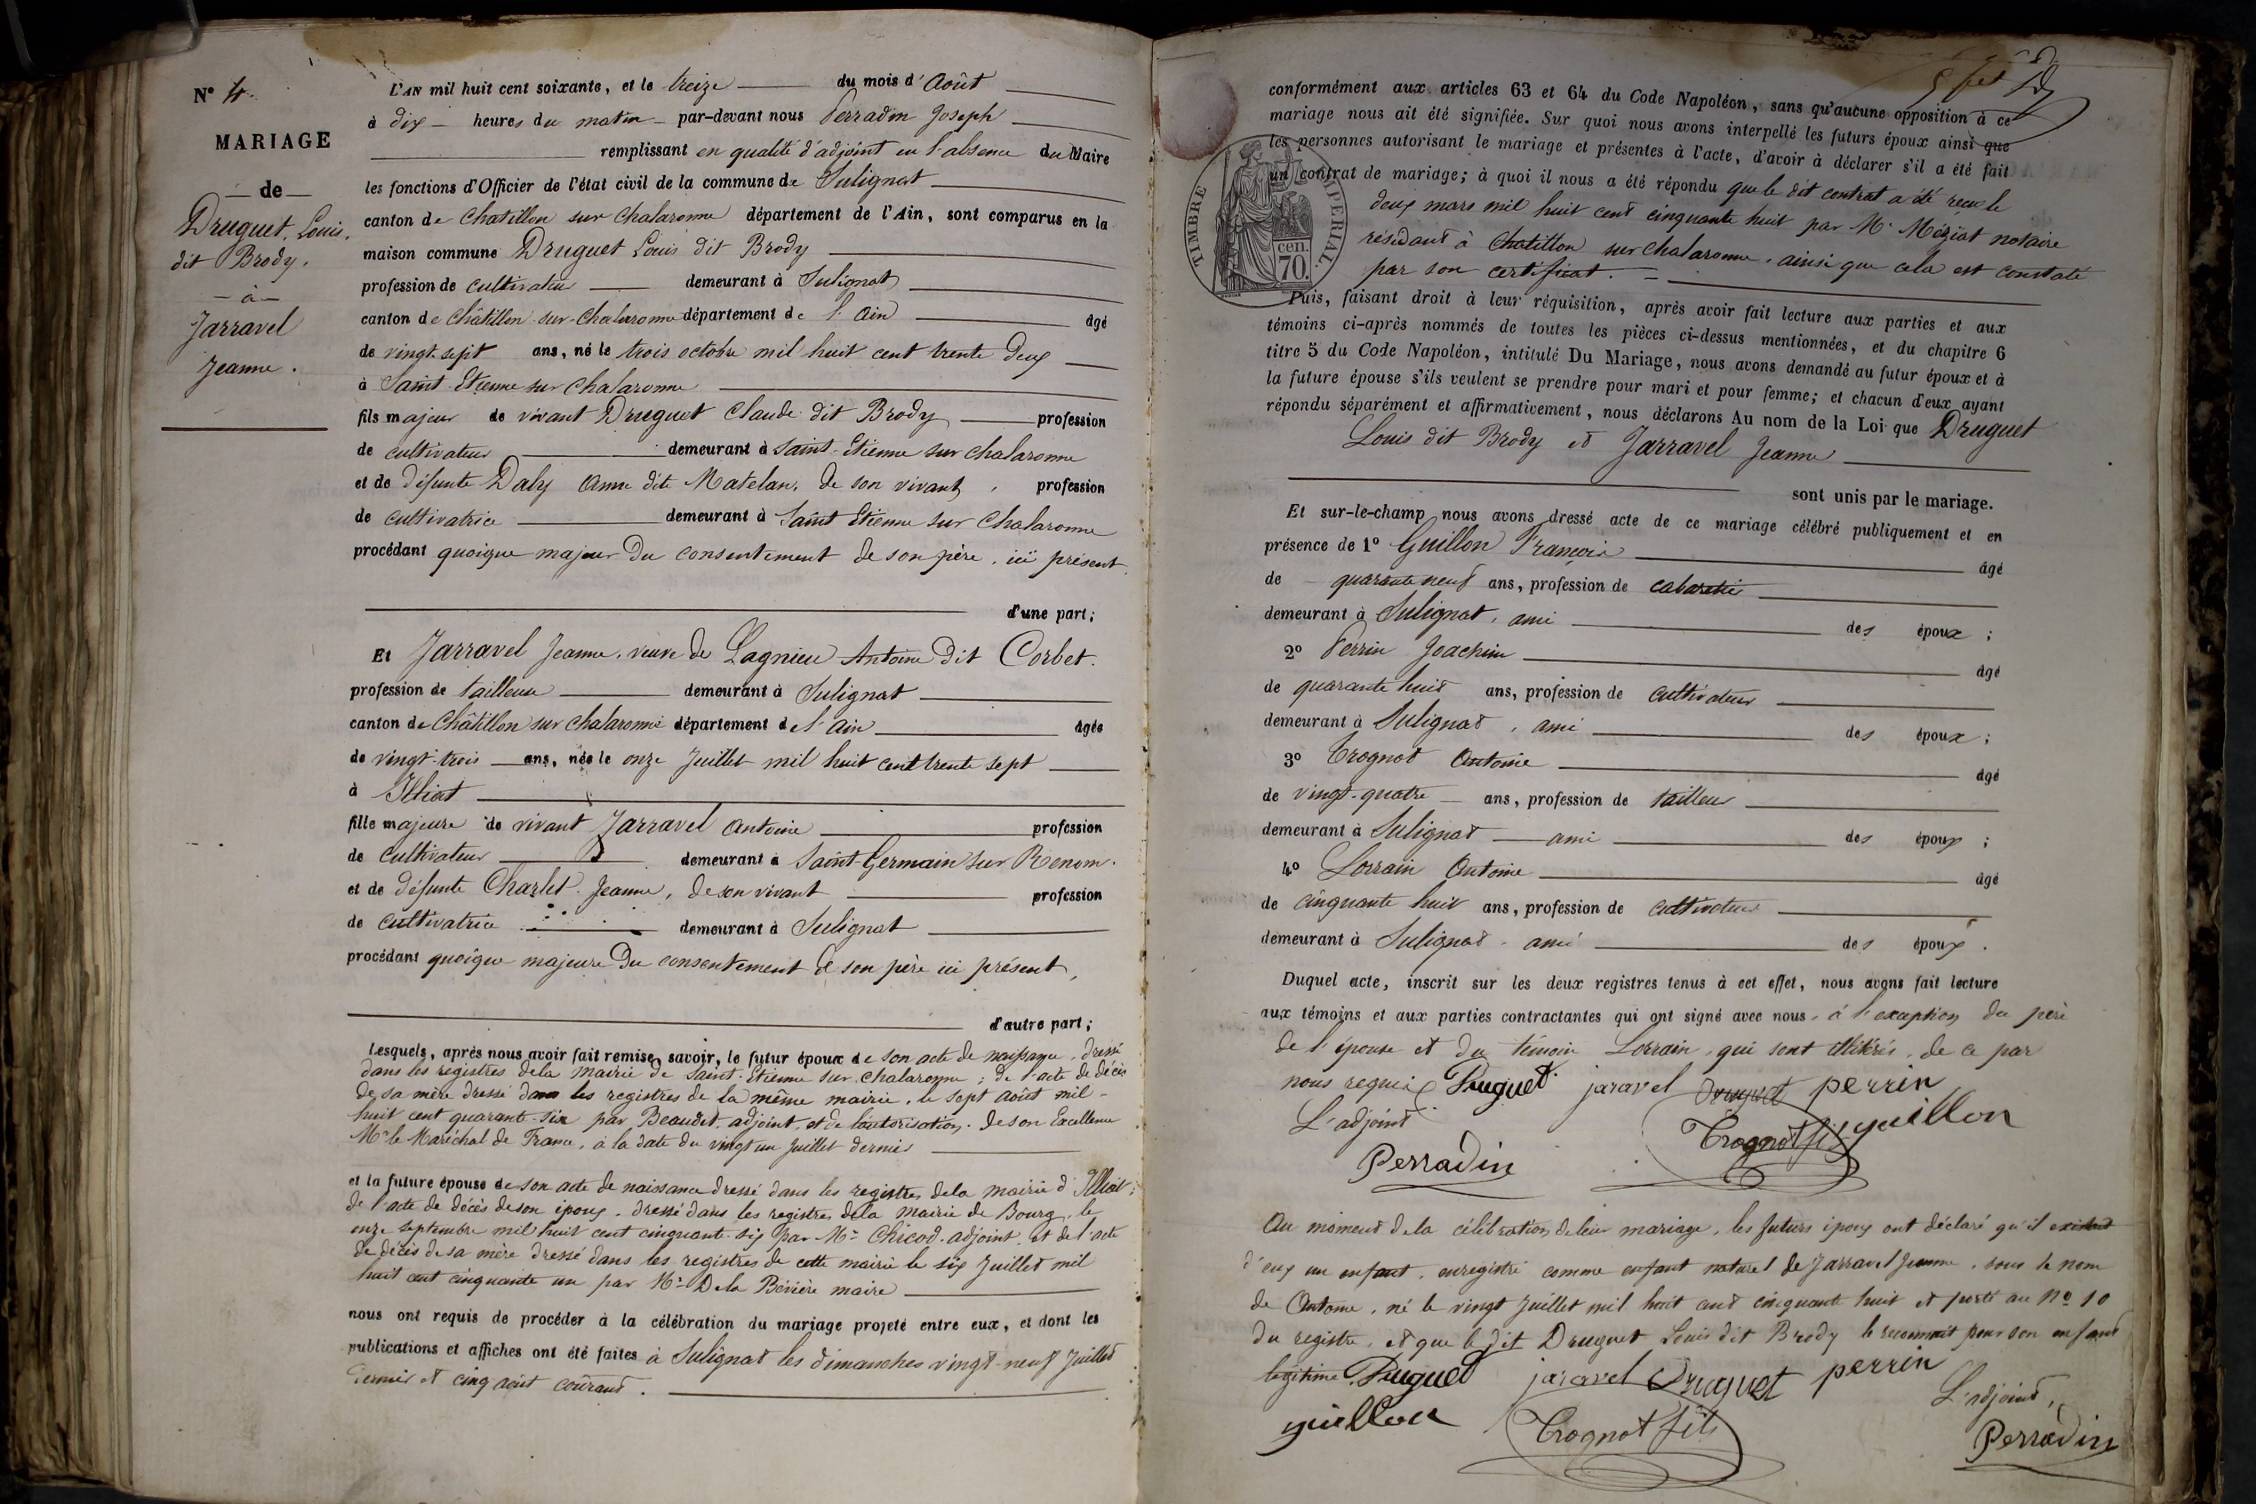 N° 4.
MARIAGE
de
Druguet, Louis,
dit Brody.
à
Jarravel
Jeanne.
L'AN mil huit cent soixante, et le treize du mois d'Août
à dix heures du matin par-devant nous Perradin Joseph
remplissant en qualité d'adjoint en l'absence du Maire
les fonctions d'Officier de l'état civil de la commune de Sulignat
canton de Chatillon sur Chalaronne département de l'Ain, sont comparus en la
maison commune Druguet Louis dit Brody
profession de cultivateur demeurant à Sulignat
canton de Châtillon-sur-Chalaronne département de l'Ain âgé
de vingt-sept ans, né le trois octobre mil huit cent trente deux
à Saint-Etienne sur Chalaronne
fils majeur de vivant Druguet Claude dit Brody profession
de cultivateur demeurant à Saint-Etienne sur Chalaronne
et de défunte Daly Anne dite Matelan, de son vivant, profession
de cultivatrice demeurant à Saint Etienne sur Chalaronne
procédant quoique majeur du consentement de son père, ici présent,
d'une part;
Et Jarravel Jeanne, veuve de Lagnieu Antoine dit Corbet.
profession de tailleuse demeurant à Sulignat
canton de Châtillon sur Chalaronne département de l'Ain âgée
de vingt-trois ans, née le onze Juillet mil huit cent trente sept
à Illiat
fille majeure de vivant Jarravel Antoine profession
de cultivateur demeurant à Saint-Germain sur Renom.
et de défunte Charlet Jeanne, de son vivant profession
de cultivatrice demeurant à Sulignat
procédant quoique majeure du consentement de son père ici présent,
d'autre part;
Lesquels, après nous avoir fait remise, savoir, le futur époux de son acte de naissance, dressé
dans les registres de la mairie de Saint-Etienne sur Chalaronne; de l'acte de décès
de sa mère dressé dans les registres de la même mairie, le sept août mil
huit cent quarante-six par Beaudet, adjoint, et de l'autorisation de son Excellence
Mr le Maréchal de France, à la date du vingt un Juillet dernier
et la future épouse de son acte de naissance dressé dans les registres de la mairie d'Illiat;
de l'acte de décès de son époux, dressé dans les registres de la mairie de Bourg, le
onze septembre mil huit cent cinquante-six par Mr Chicod, adjoint, et de l'acte
de décès de sa mère dressé dans les registres de cette mairie le six Juillet mil
huit cent cinquante un par Mr De la Bévière maire
nous ont requis de procéder à la célébration du mariage projeté entre eux, et dont les
publications et affiches ont été faites à Sulignat les dimanches vingt-neuf Juillet
dernier et cinq août courant.
conformément aux articles 63 et 64 du Code Napoléon, sans qu'aucune opposition à ce
mariage nous ait été signifiée. Sur quoi nous avons interpellé les futurs époux ainsi que
les personnes autorisant le mariage et présentes à l'acte, d'avoir à déclarer s'il a été fait
un contrat de mariage; à quoi il nous a été répondu que le dit contrat a été reçu le
deux mars mil huit cent cinquante huit par Mr Méziat notaire
résidant à Chatillon sur Chalaronne, ainsi que cela est constaté
par son certificat.
TIMBRE IMPERIAL.
cen.
70.
Puis, faisant droit à leur réquisition, après avoir fait lecture aux parties et aux
témoins ci-après nommés de toutes les pièces ci-dessus mentionnées, et du chapitre 6
titre 5 du Code Napoléon, intitulé Du Mariage, nous avons demandé au futur époux et à
la future épouse s'ils veulent se prendre pour mari et pour femme; et chacun d'eux ayant
répondu séparément et affirmativement, nous déclarons Au nom de la Loi que Druguet
Louis dit Brody et Jarravel Jeanne
sont unis par le mariage.
Et sur-le-champ nous avons dressé acte de ce mariage célébré publiquement et en
présence de 1° Guillon François âgé
de quarante neuf ans, profession de cabaretier
demeurant à Sulignat, ami des époux;
2° Perrin Joachim âgé
de quarante huit ans, profession de cultivateur
demeurant à Sulignat, ami des époux;
3° Trognot Antoine âgé
de vingt-quatre ans, profession de tailleur
demeurant à Sulignat ami des époux;
4° Lorrain Antoine âgé
de cinquante huit ans, profession de cultivateur
demeurant à Sulignat, ami des époux.
Duquel acte, inscrit sur les deux registres tenus à cet effet, nous avons fait lecture
aux témoins et aux parties contractantes qui ont signé avec nous, à l'exception du père
de l'épouse et du témoin Lorrain, qui sont illitérés, de ce par
nous requis Druguet jaravel Druguet perrin
L'adjoint Trognot fils guillon
Perradin
Au moment de la célébration de leur mariage, les futurs époux ont déclaré qu'il existait
d'eux un enfant, enregistré comme enfant naturel de Jarravel Jeanne, sous le nom
de Antoine, né le vingt Juillet mil huit cent cinquante huit et porté au N° 10
du registre, et que le dit Druguet Louis dit Brody le reconnait pour son enfant
légitime. Druguet jaravel Druguet perrin
guillon Trognot fils L'adjoint,
Perradin